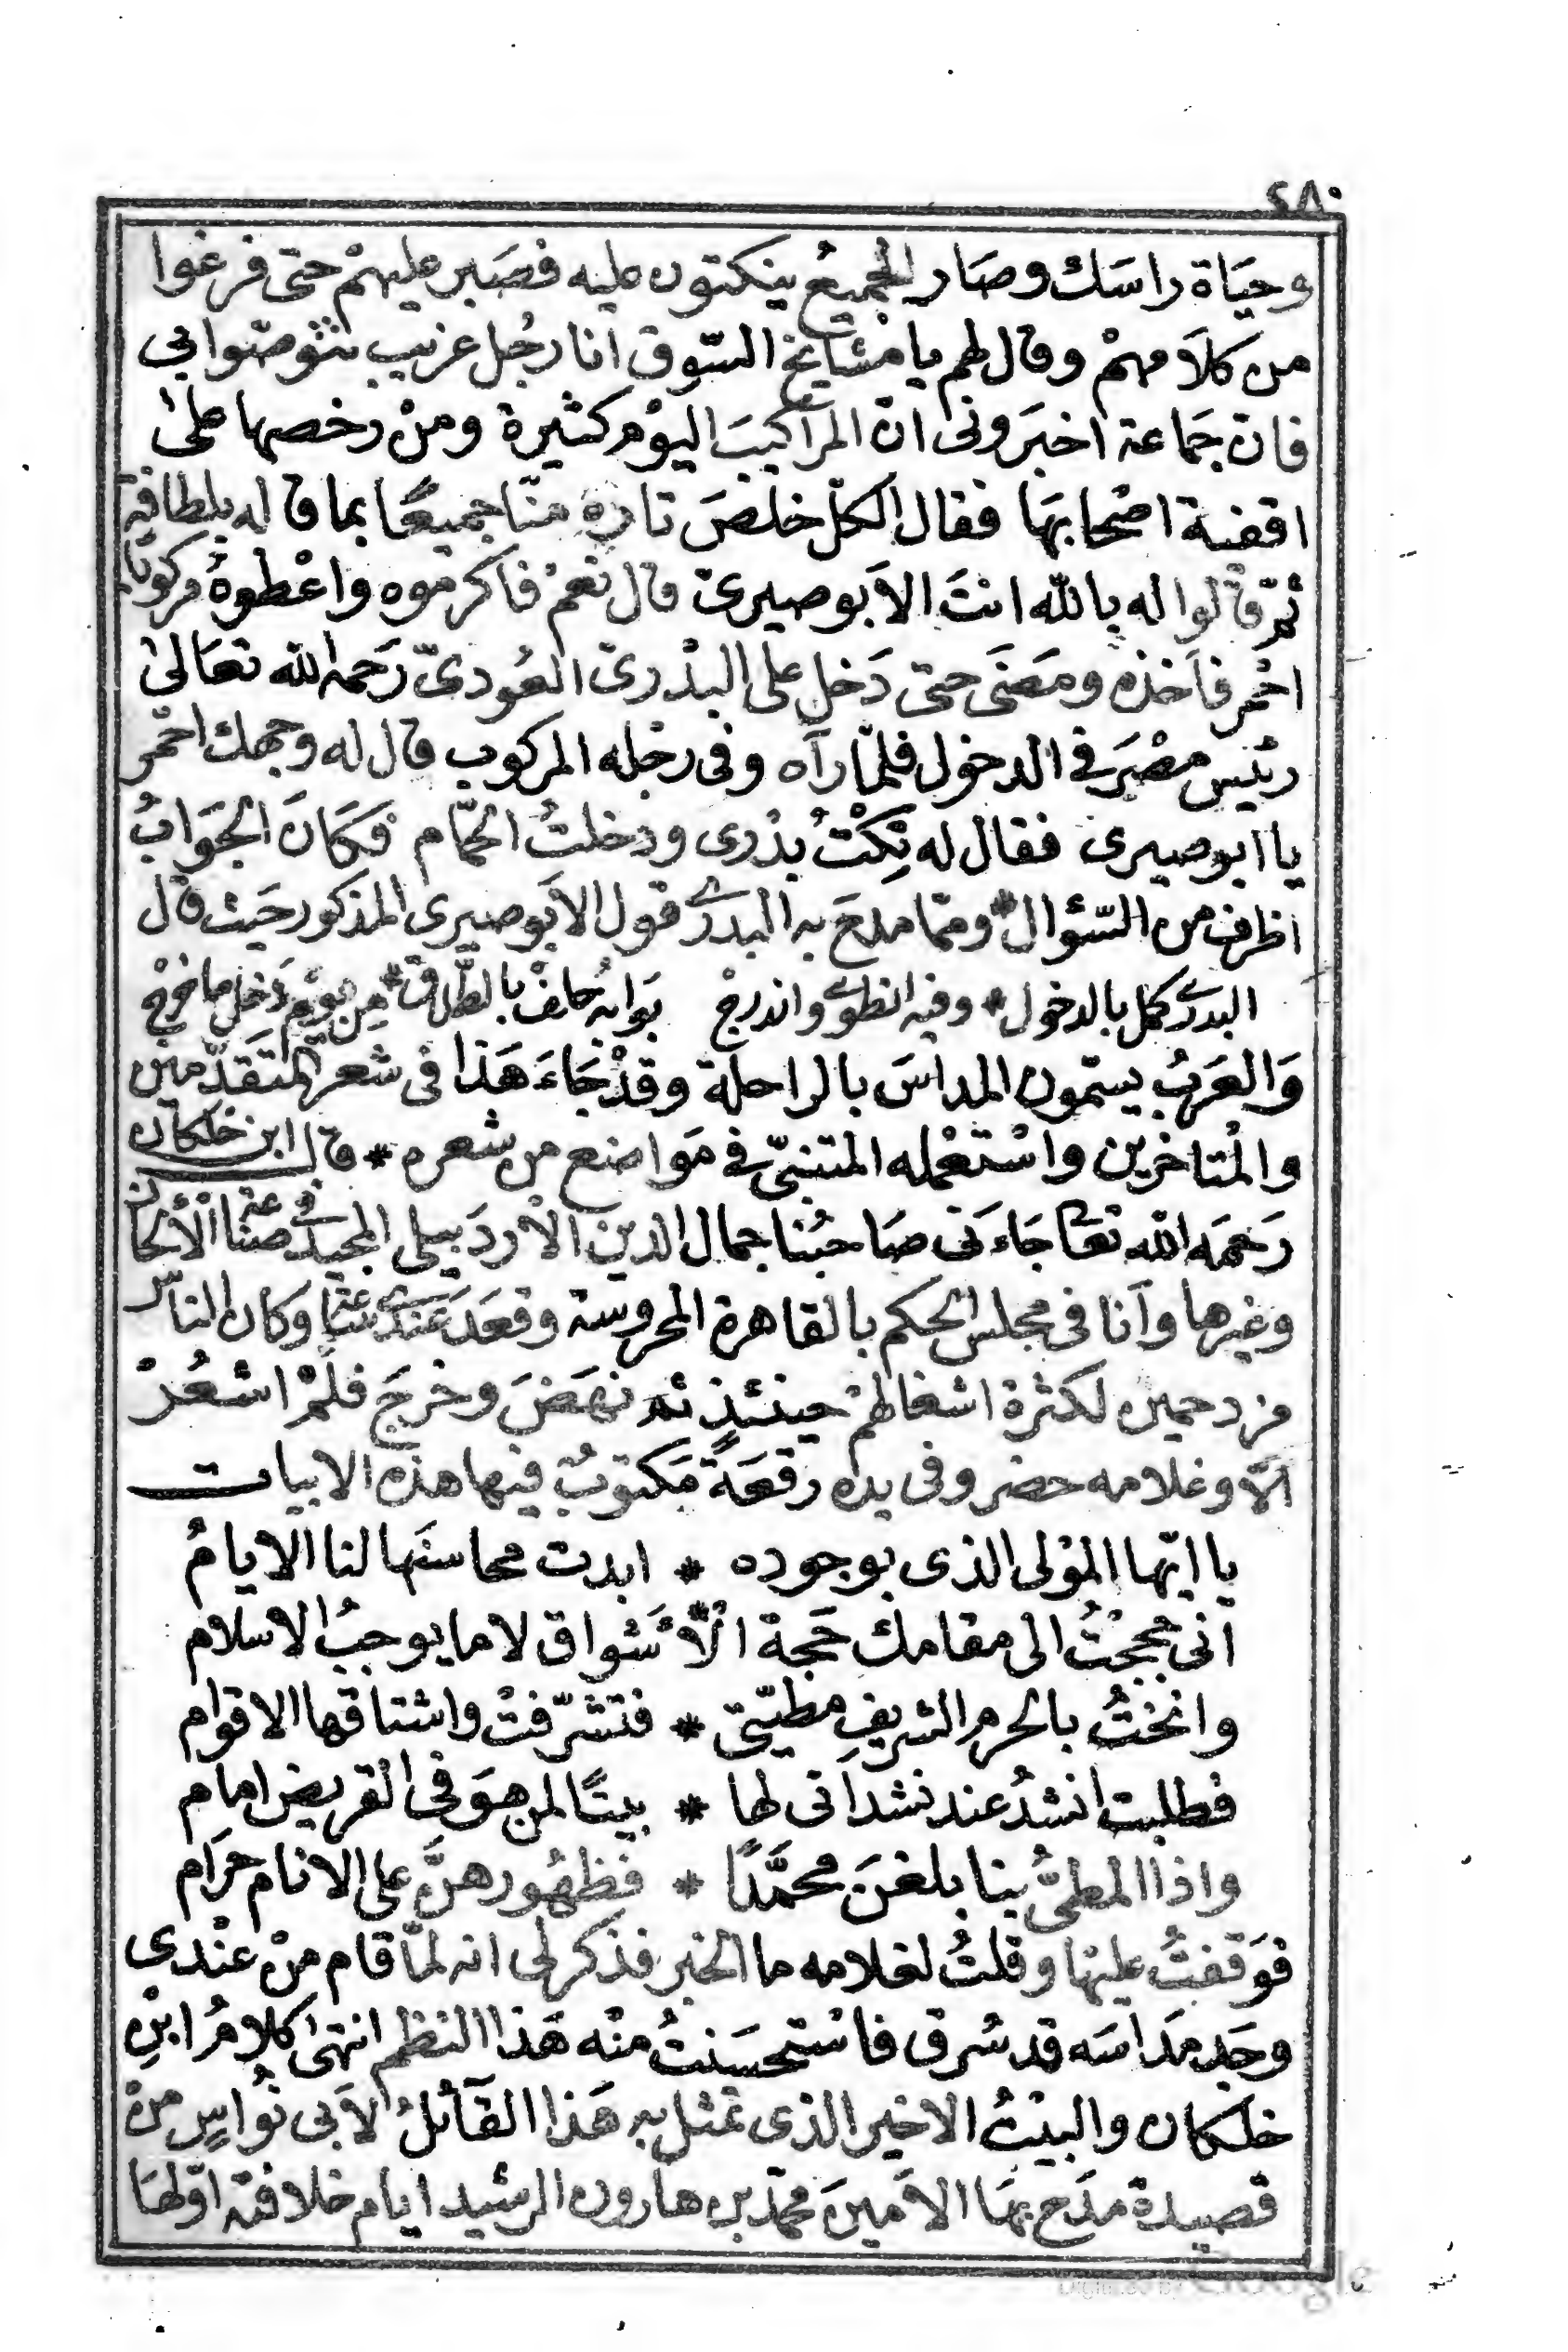 ٤٨٠
وحيَاة راسَك وصَار الجميعُ ينكتون عليه فصَبر عليهمْ حتى فرغوا
من كلاَمهمْ وقال لهم يا مشايخ السّوق انا رجُل غريب نتوصّوا بي
فان جَماعة اخبَرونى انّ المرَاكيبَ اليوْم كثيرة ومنْ رخصها علىٰ
اقفية اصْحابهَا فقال الكلّ خلصَ تارهُ منّا جميعًا بما قاله بلطافة
ثمّ قالوا له بالله انتَ الاَبوصيرىّ قال نعمْ فاكرموه واعْطوهُ مركوبًا
احْمر فاَخذه ومَضَى حتى دَخل على البدْرىّ العُودىّ رَحمه الله تعَالىٰ
رئيس مصْرَ فى الدخول فلمّا رآه وفى رجْله المركوب قال له وجهك احْمر
يا ابوصيرى فقال له نِكْتُ بدْرى ودخلتُ الحمّام فكَانَ الجَوَابُ
اظرف من السّؤال * وممّا مدحَ به البدرى قول الاَبوصيرى المذكور حَيث قال
البدرى كمل بالدخول * وفيه انطوى واندرجْ بوّابه حَالفْ بالطّلاق * مِن يوْم دَخل ما خرجْ
وَالعَربُ يسمّون المداسَ بالراحلة وقدْ جَاءَ هَذا فى شعر المتَقدّمين
والمُتاخرين واسْتعْمله المتنبّى فى مَواضع من شعره * قال ابن خلكان
رَحمَه الله تعالى جَاءَنى صَاحبُنا جمال الدين الاردَبيلى المجيد فى صنَاعة الألحان
وغيرها وَانا فى مجلس الحكم بالقاهرة المحروسة وقعَدَ عندى ساعة وكان الناس
مزدحمين لكثرة اشغالهمْ حينئذ ثم نهَضَ وخرجَ فلمْ اشعُرْ
الاّ وغلامه حضر وفى يده رقعَةً مَكتوبٌ فيها هذه الابيات
يا ايّها الموْلى الذى بوجوده * ابدت محاسنَها لنا الايامُ
انى حججْتُ الى مقامك حَجة الأَشواق لا ما يوجبُ الاسلام
وانختُ بالحرم الشريفِ مطيّتى * فتشرّفتْ واشتاقها الاقوام
فطلبت انشدُ عند نشدانى لها * بيتًا لمن هوَ فى القريض امام
واذا المطىُّ بنا بلغنَ محمَّدًا * فظهُورهنَّ على الانام حرَام
فوَقفتُ عليها وقلتُ لغلامه ما الخبر فذكر لى انه لمّا قام منْ عنْدى
وجَد مدَاسَه قد سُرق فاسْتحسَنتُ منْه هَذا النظم انتهىٰ كلامُ ابنِ
خلكان والبيْتُ الاخير الذى تمثل به هَذا القآئلُ لاَبى نُواسٍ منْ
قصيدة مدَح بهَا الاَمينَ محمّد بن هارون الرشيد ايام خلافته اوّلهَا